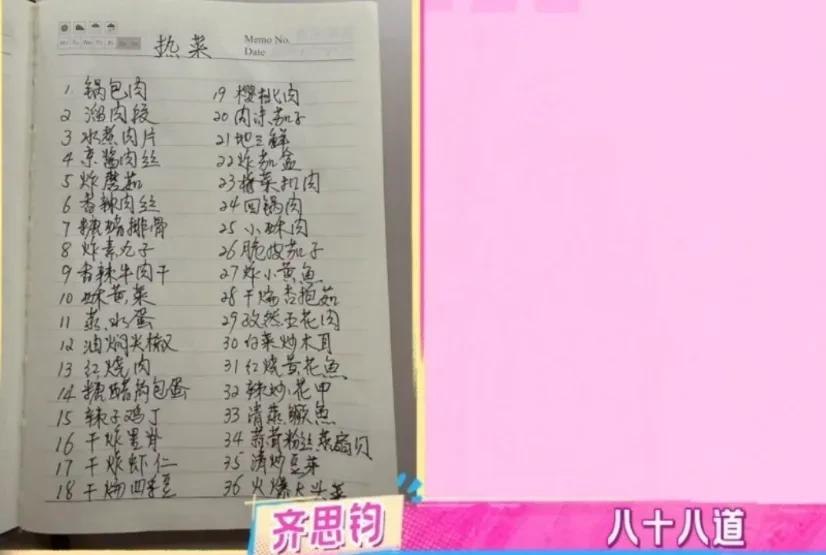 Memo No.
Date
热菜
1 锅包肉
2 溜肉段
3 水煮肉片
4 京酱肉丝
5 炸蘑菇
6 香辣肉丝
7 糖醋排骨
8 炸素丸子
9 香辣牛肉干
10 熘黄菜
11 蒸水蛋
12 油焖尖椒
13 红烧肉
14 糖醋荷包蛋
15 辣子鸡丁
16 干炸里脊
17 干炸虾仁
18 干煸四季豆
19 樱桃肉
20 肉沫茄子
21 地三鲜
22 炸茄盒
23 梅菜扣肉
24 回锅肉
25 小酥肉
26 脆皮茄子
27 炸小黄鱼
28 干煸杏鲍菇
29 孜然五花肉
30 白菜炒木耳
31 红烧黄花鱼
32 辣炒花甲
33 清蒸鳜鱼
34 蒜蓉粉丝蒸扇贝
35 清炒豆芽
36 火爆大头菜
齐思钧
八十八道